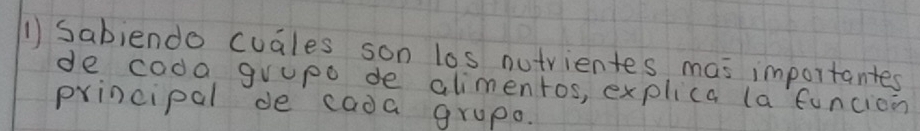 1) Sabiendo cuáles son los nutrientes más importantes
de cada grupo de alimentos, explica la función
principal de cada grupo.